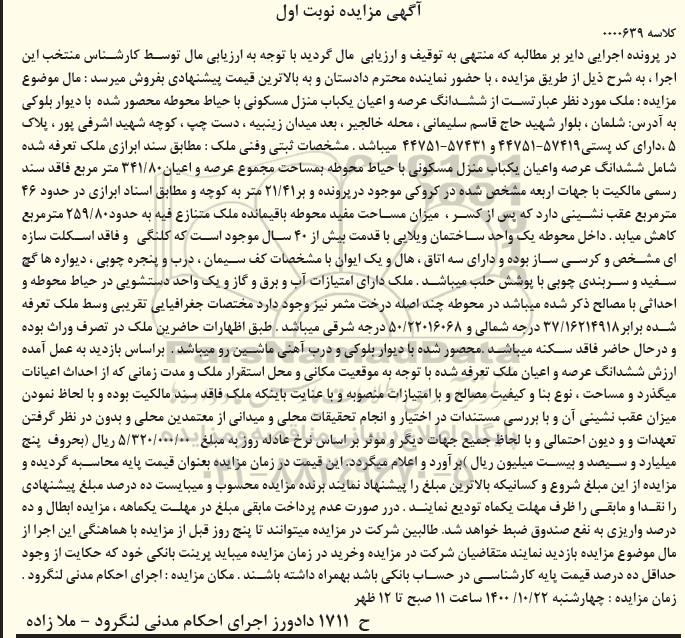 آگهی مزایده نوبت اول
کلاسه ۰۰۰۰۶۳۹
در پرونده اجرایی دایر بر مطالبه که منتهی به توقیف و ارزیابی مال گردید با توجه به ارزیابی مال توسط کارشناس منتخب این
اجرا ، به شرح ذیل از طریق مزایده ، با حضور نماینده محترم دادستان و به بالاترین قیمت پیشنهادی بفروش میرسد : مال موضوع
مزایده : ملک مورد نظر عبارتست از ششدانگ عرصه و اعیان یکباب منزل مسکونی با حیاط محوطه محصور شده با دیوار بلوکی
به آدرس: شلمان ، بلوار شهید حاج قاسم سلیمانی ، محله خالجیر ، بعد میدان زینبیه ، دست چپ ، کوچه شهید اشرفی پور ، پلاک
۵ ،دارای کد پستی۵۷۴۱۹-۴۴۷۵۱ و ۵۷۴۳۱-۴۴۷۵۱ میباشد . مشخصات ثبتی وفنی ملک : مطابق سند ابرازی ملک تعرفه شده
شامل ششدانگ عرصه واعیان یکباب منزل مسکونی با حیاط محوطه بمساحت مجموع عرصه و اعیان۳۴۱/۸۰ متر مربع فاقد سند
رسمی مالکیت با جهات اربعه مشخص شده در کروکی موجود درپرونده و بر۲۱/۴۱ متر به کوچه و مطابق اسناد ابرازی در حدود ۴۶
مترمربع عقب نشینی دارد که پس از کسر ، میزان مساحت مفید محوطه باقیمانده ملک متنازع فیه به حدود۲۵۹/۸۰ مترمربع
کاهش میابد . داخل محوطه یک واحد ساختمان ویلایی با قدمت بیش از ۴۰ سال موجود است که کلنگی و فاقد اسکلت سازه
ای مشخص و کرسی ساز بوده و دارای سه اتاق ، هال و یک ایوان با مشخصات کف سیمان ، درب و پنجره چوبی ، دیواره ها گچ
سفید و سربندی چوبی با پوشش حلب میباشد . ملک دارای امتیازات آب و برق و گاز و یک واحد دستشویی در حیاط محوطه و
احداثی با مصالح ذکر شده میباشد در محوطه چند اصله درخت مثمر نیز وجود دارد مختصات جغرافیایی تقریبی وسط ملک تعرفه
شده برابر۳۷/۱۶۲۱۴۹۱۸ درجه شمالی و ۵۰/۲۲۰۱۶۰۶۸ درجه شرقی میباشد . طبق اظهارات حاضرین ملک در تصرف وراث بوده
و درحال حاضر فاقد سکنه میباشد .محصور شده با دیوار بلوکی و درب آهنی ماشین رو میباشد . براساس بازدید به عمل آمده
ارزش ششدانگ عرصه و اعیان ملک تعرفه شده با توجه به موقعیت مکانی و محل استقرار ملک و مدت زمانی که از احداث اعیانات
میگذرد و مساحت ، نوع بنا و کیفیت مصالح و با امتیازات منصوبه و با عنایت باینکه ملک فاقد سند مالکیت بوده و با لحاظ نمودن
میزان عقب نشینی آن و با بررسی مستندات در اختیار و انجام تحقیقات محلی و میدانی از معتمدین محلی و بدون در نظر گرفتن
تعهدات و و دیون احتمالی و با لحاظ جمیع جهات دیگر و موثر بر اساس نرخ عادله روز به مبلغ ۵/۳۲۰/۰۰۰/۰۰۰ ریال (بحروف پنج
میلیارد و سیصد و بیست میلیون ریال )برآورد و اعلام میگردد. این قیمت در زمان مزایده بعنوان قیمت پایه محاسبه گردیده و
مزایده از این مبلغ شروع و کسانیکه بالاترین مبلغ را پیشنهاد نمایند برنده مزایده محسوب و میبایست ده درصد مبلغ پیشنهادی
را نقدا و مابقی را ظرف مهلت یکماه تودیع نمایند . درر صورت عدم پرداخت مابقی مبلغ در مهلت یکماهه ، مزایده ابطال و ده
درصد واریزی به نفع صندوق ضبط خواهد شد. طالبین شرکت در مزایده میتوانند تا پنج روز قبل از مزایده با هماهنگی این اجرا از
مال موضوع مزایده بازدید نمایند متقاضیان شرکت در مزایده وخرید در زمان مزایده میباید پرینت بانکی خود که حکایت از وجود
حداقل ده درصد قیمت پایه کارشناسی در حساب بانکی باشد بهمراه داشته باشند . مکان مزایده : اجرای احکام مدنی لنگرود .
زمان مزایده : چهارشنبه ۱۰/۲۲/ ۱۴۰۰ ساعت ۱۱ صبح تا ۱۲ ظهر
ح ۱۷۱۱ دادورز اجرای احکام مدنی لنگرود - ملا زاده